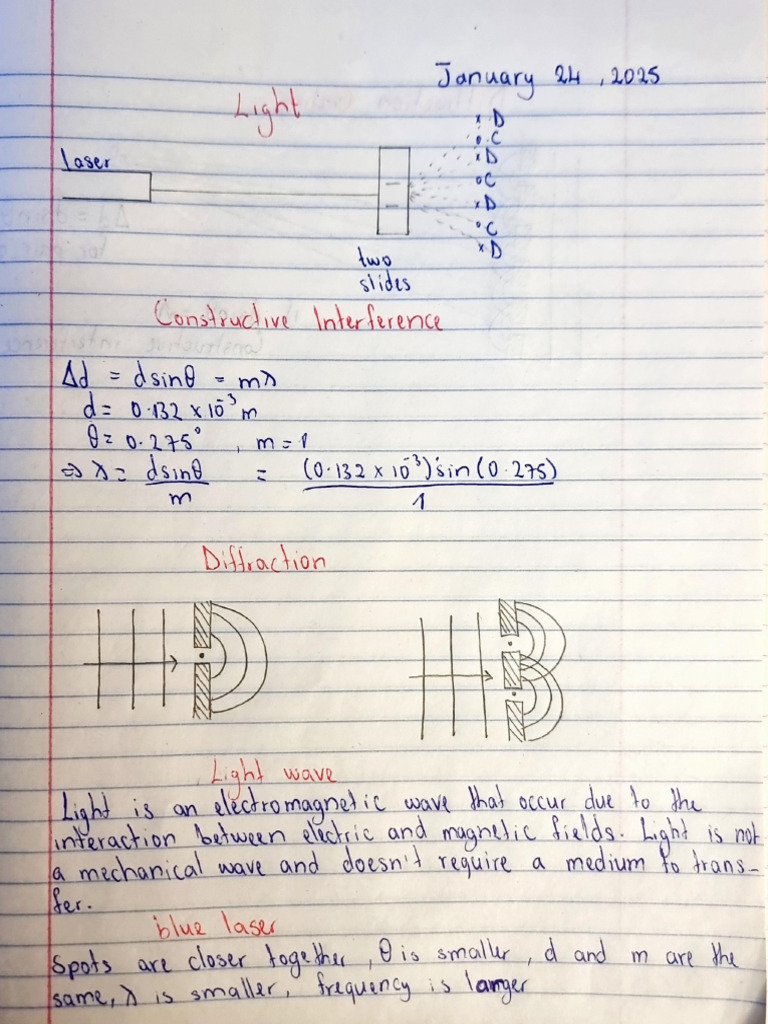 January 24, 2025
Light
laser
x D
o C
x D
o C
x D
o C
x D
two
slides
Constructive Interference
Δd = dsinθ = mλ
d = 0.132 x 10⁻³ m
θ = 0.275° , m = 1
⇒ λ = dsinθ / m = (0.132 x 10⁻³) sin (0.275) / 1
Diffraction
Light wave
Light is an electromagnetic wave that occur due to the
interaction between electric and magnetic fields. Light is not
a mechanical wave and doesn't require a medium to trans-
fer.
blue laser
Spots are closer together, θ is smaller, d and m are the
same, λ is smaller, frequency is larger